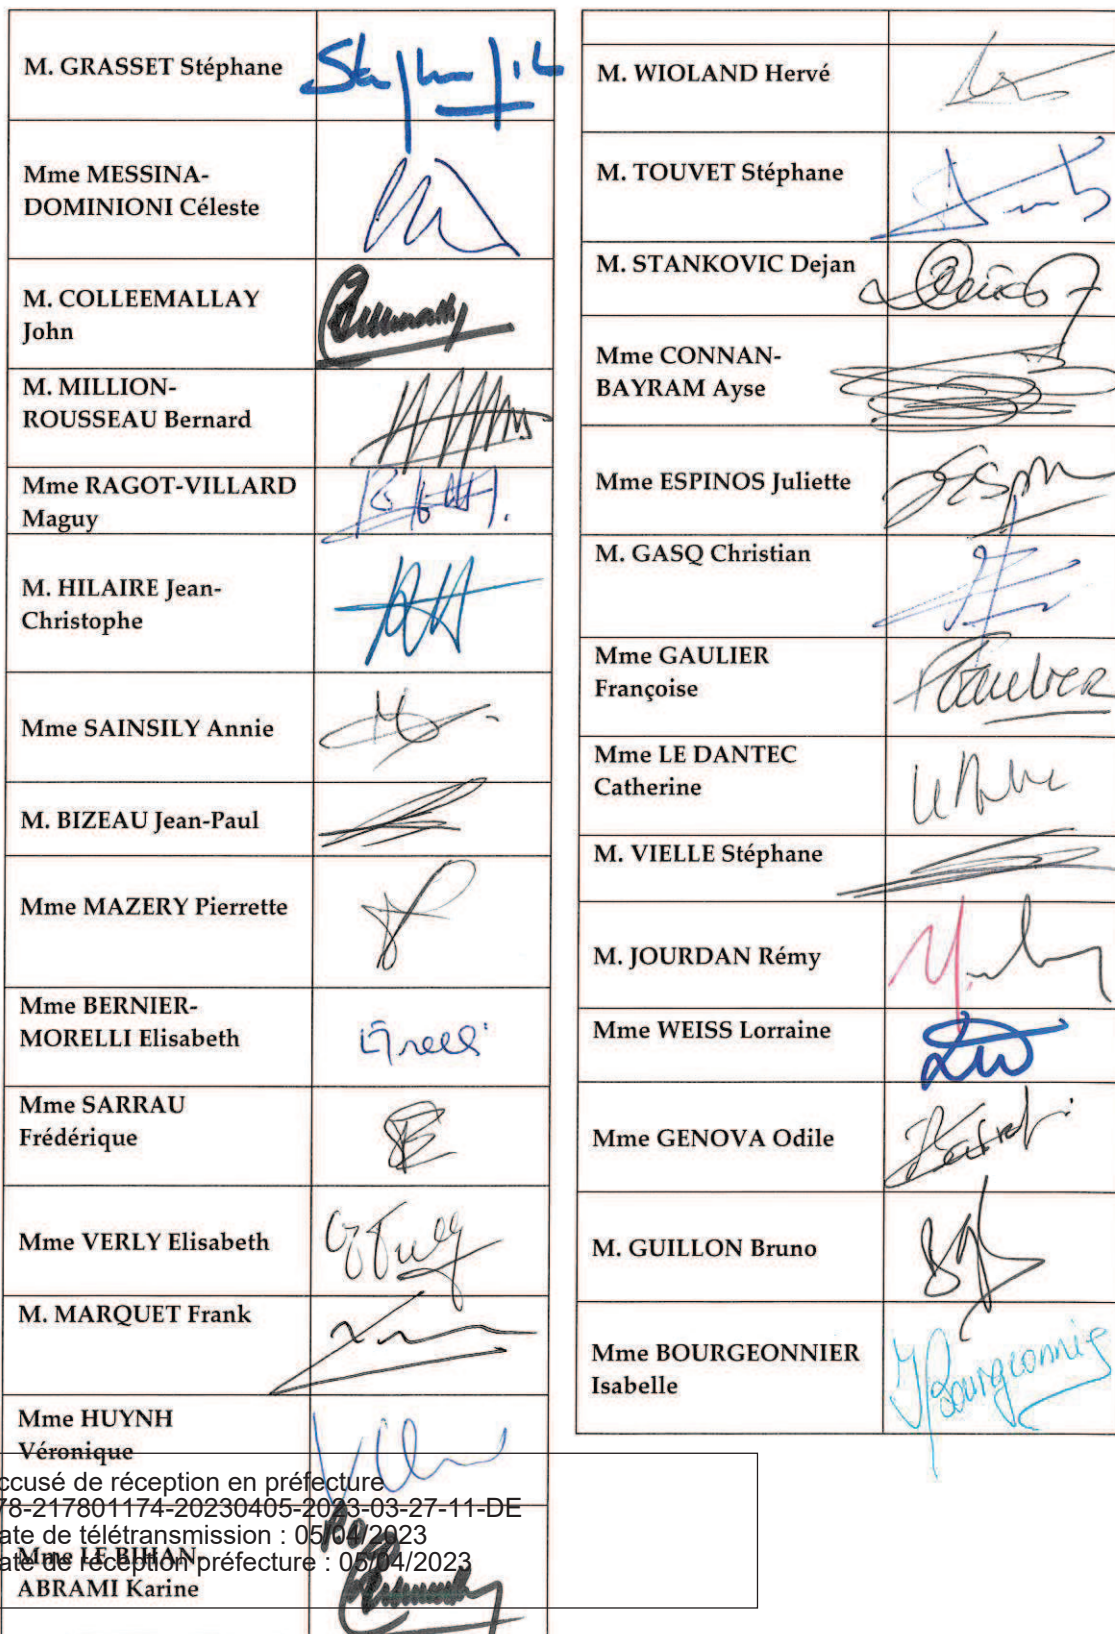 M. GRASSET Stéphane
Mme MESSINA-
DOMINIONI Céleste
M. COLLEEMALLAY
John
M. MILLION-
ROUSSEAU Bernard
Mme RAGOT-VILLARD
Maguy
M. HILAIRE Jean-
Christophe
Mme SAINSILY Annie
M. BIZEAU Jean-Paul
Mme MAZERY Pierrette
Mme BERNIER-
MORELLI Elisabeth
Mme SARRAU
Frédérique
Mme VERLY Elisabeth
M. MARQUET Frank
Mme HUYNH
Véronique
Mme LE BIHAN-
ABRAMI Karine
ccusé de réception en préfecture
78-217801174-20230405-2023-03-27-11-DE
ate de télétransmission : 05/04/2023
ate de réception préfecture : 05/04/2023
M. WIOLAND Hervé
M. TOUVET Stéphane
M. STANKOVIC Dejan
Mme CONNAN-
BAYRAM Ayse
Mme ESPINOS Juliette
M. GASQ Christian
Mme GAULIER
Françoise
Mme LE DANTEC
Catherine
M. VIELLE Stéphane
M. JOURDAN Rémy
Mme WEISS Lorraine
Mme GENOVA Odile
M. GUILLON Bruno
Mme BOURGEONNIER
Isabelle